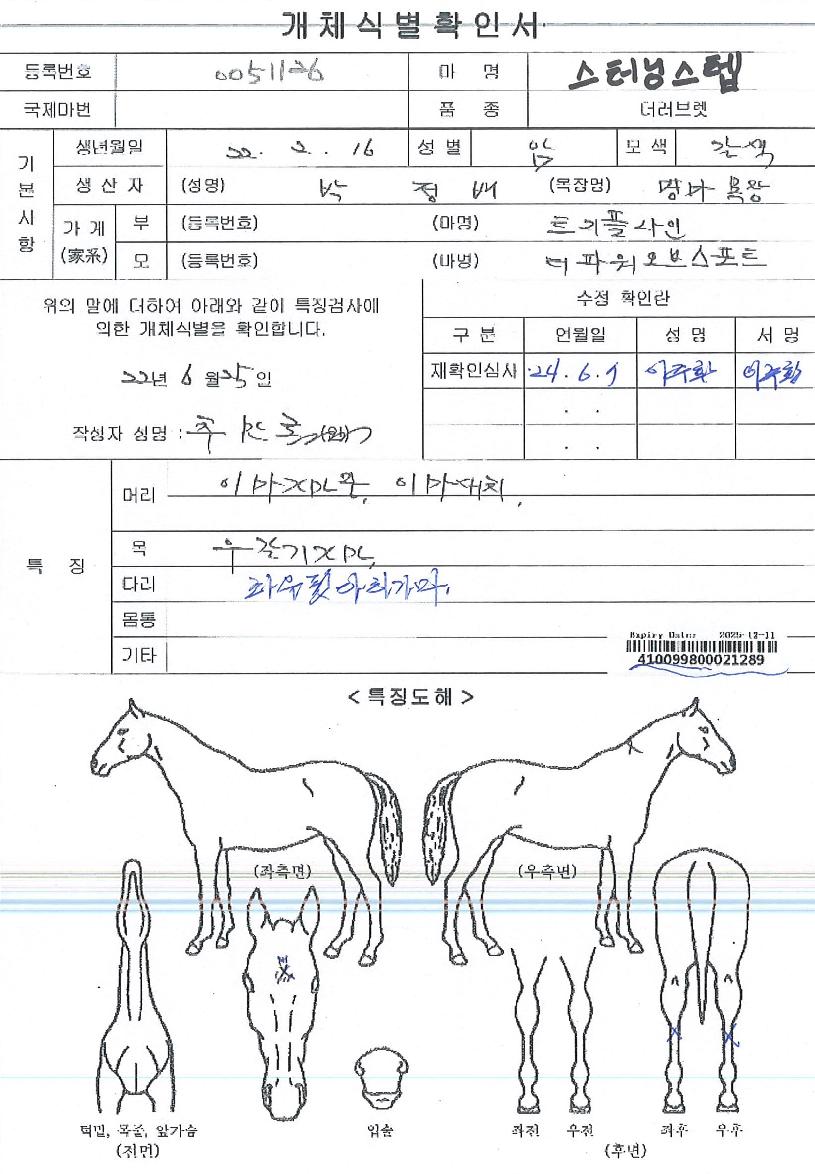 개체식별확인서
등록번호 0051126 마 명 스터닝스텝
국제마번 품 종 더러브렛
기본사항
생년월일 22. 2. 16 성별 암 모색 갈색
생산자 (성명) 박 정 배 (목장명)
가계(家系) 부 (등록번호) (마명) 트리플라인
모 (등록번호) (마명) 더파워오브스포트
위의 말에 더하여 아래와 같이 특징검사에
의한 개체식별을 확인합니다.
22년 6월 25일
작성자 성명 :
수정 확인란
구분 언월일 성명 서명
재확인심사 '24. 6. 이주환 이주환
. .
. .
특 징
머리
목
다리
몸통
기타
Expiry Date: 2025-12-11
410099800021289
< 특징도해 >
(좌측면) (우측면)
턱밑, 목줄, 앞가슴 입술 좌전 우전 좌후 우후
(전면) (후면)